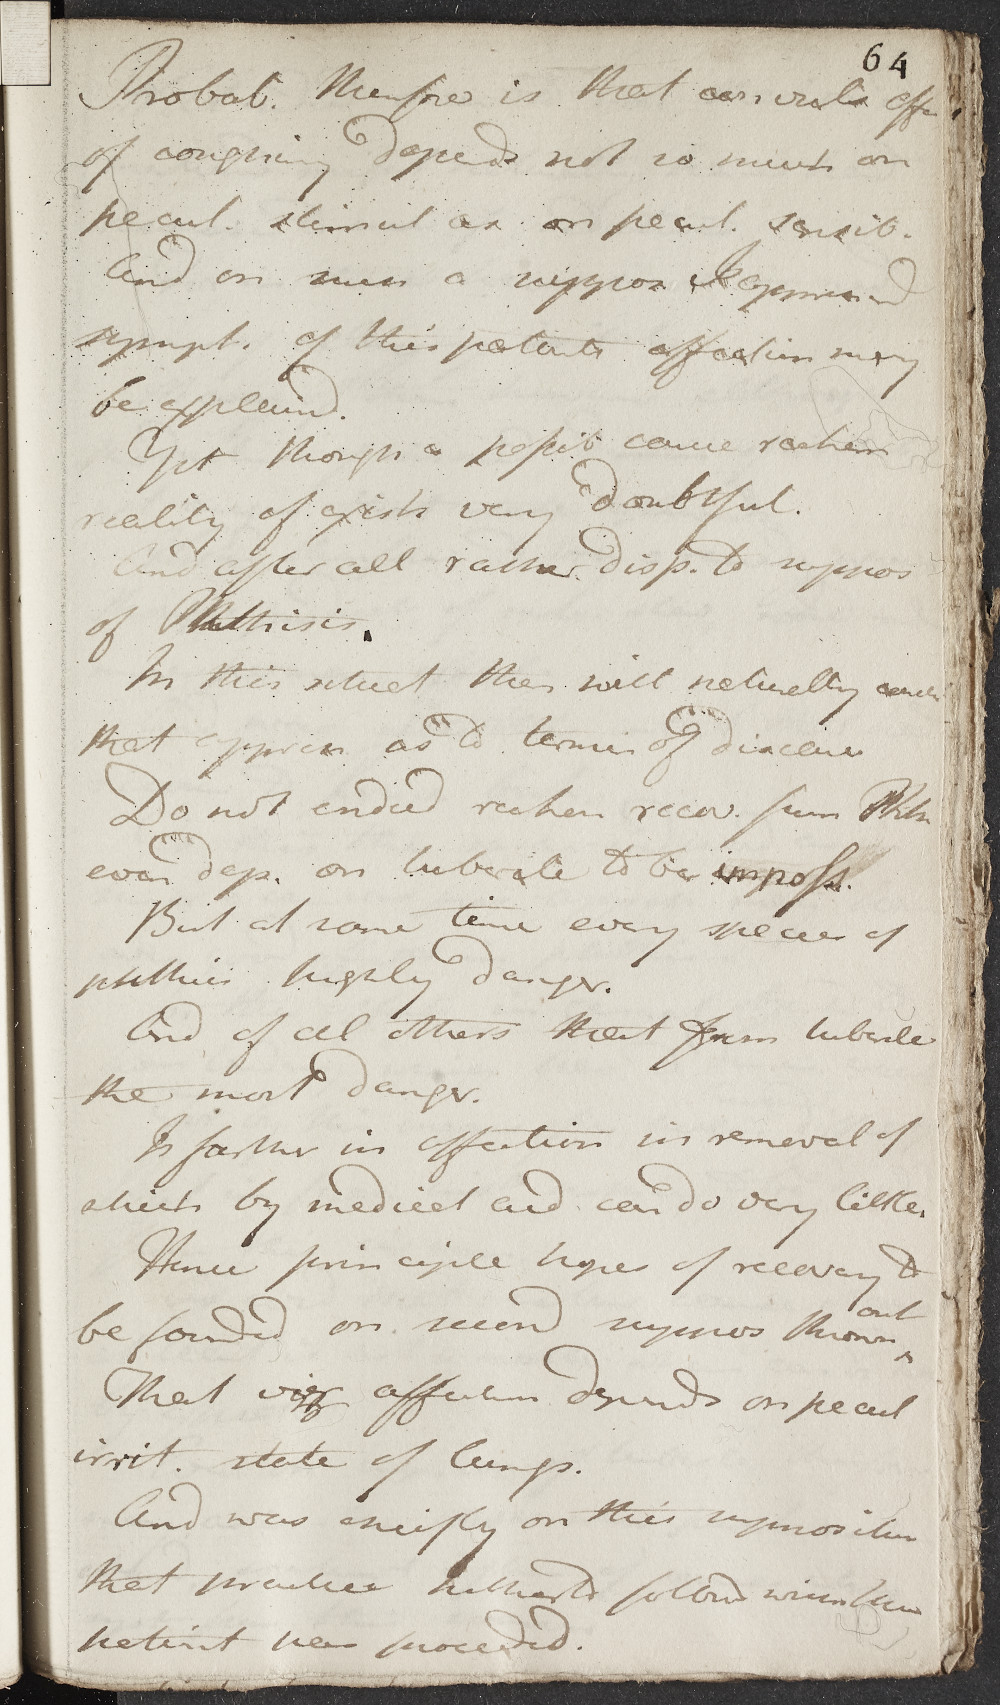 64
Probab. therefore is that convuls. effe
of coughing depends not so much on
pecul. stimul as on pecul. sensib.
And on such a suppos
sympt. of this patients affection may
be explaind.
Yet though a possib cause reckon
reality of exists very doubtful.
And after all rather disp. to suppos
of Phthisis.
In this situat then will naturally
that appreh as to termin of disease
Do not endeed reckon recov. from Phth
even dep. on tubercle to be imposs.
But at same time every species of
phthisis highly danger.
And of all others that from tubercle
the most danger.
Is farther in affection in removal of
which by medical aid can do very little.
Hence principle hopes of recovery to
be founded on second suppos thrown
out
That viz affection depends on pecul
irrit. state of lungs.
And was chiefly on this supposition
that practice hitherto followd with
patient has proceeded.